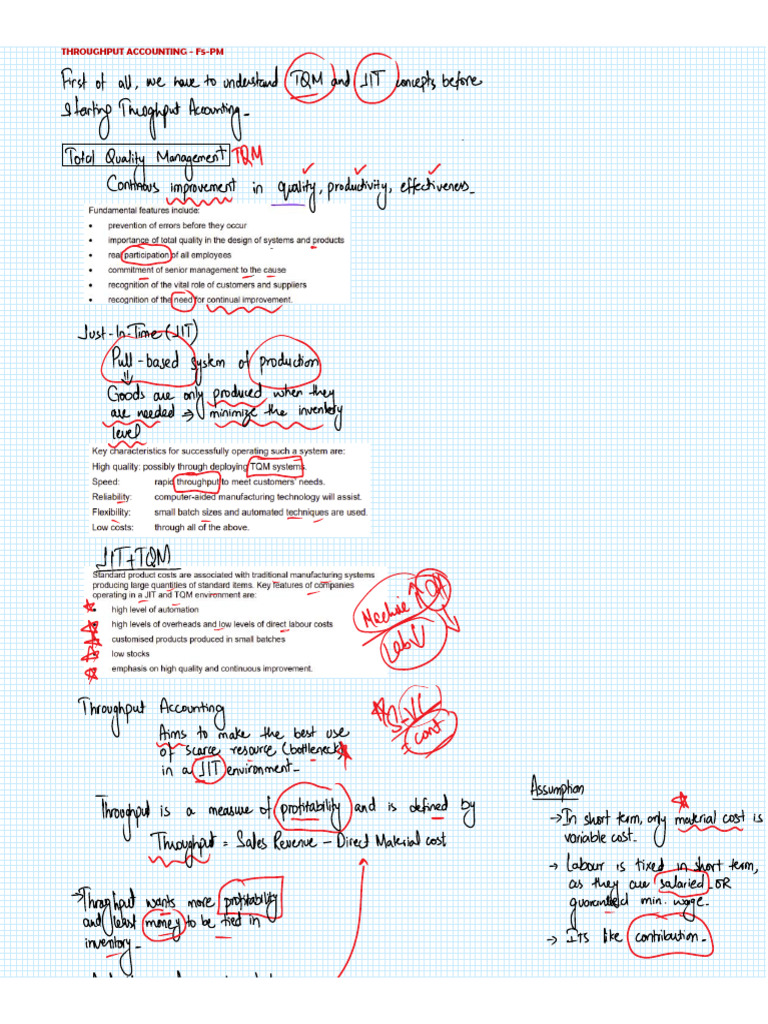 THROUGHPUT ACCOUNTING - F5-PM
First of all, we have to understand TQM and JIT concepts before
starting Throghput Accounting.
Total Quality Management TQM
Continous improvement in quality, productivity, effectiveness.
Fundamental features include:
• prevention of errors before they occur
• importance of total quality in the design of systems and products
• real participation of all employees
• commitment of senior management to the cause
• recognition of the vital role of customers and suppliers
• recognition of the need for continual improvement.
Just-In-Time (JIT)
Pull-based system of production
Goods are only produced when they
are needed → minimize the inventory
level
Key characteristics for successfully operating such a system are:
High quality: possibly through deploying TQM systems.
Speed: rapid throughput to meet customers' needs.
Reliability: computer-aided manufacturing technology will assist.
Flexibility: small batch sizes and automated techniques are used.
Low costs: through all of the above.
JIT+TQM
Standard product costs are associated with traditional manufacturing systems
producing large quantities of standard items. Key features of companies
operating in a JIT and TQM environment are:
• high level of automation
• high levels of overheads and low levels of direct labour costs
• customised products produced in small batches
• low stocks
• emphasis on high quality and continuous improvement.
Machine ↑ OH
Lab ↓
Throughput Accounting
S-VC
= Cont
Aims to make the best use
of scarce resource (bottleneck)
in a JIT environment.
Throughput is a measure of profitability and is defined by
Throughput = Sales Revenue - Direct Material cost
→ Throughput wants more profitability
and least money to be tied in
inventory.
Assumption
→ In short term, only material cost is
variable cost.
→ Labour is fixed in short term,
as they are salaried OR
guaranteed min. wage.
→ Its like contribution.